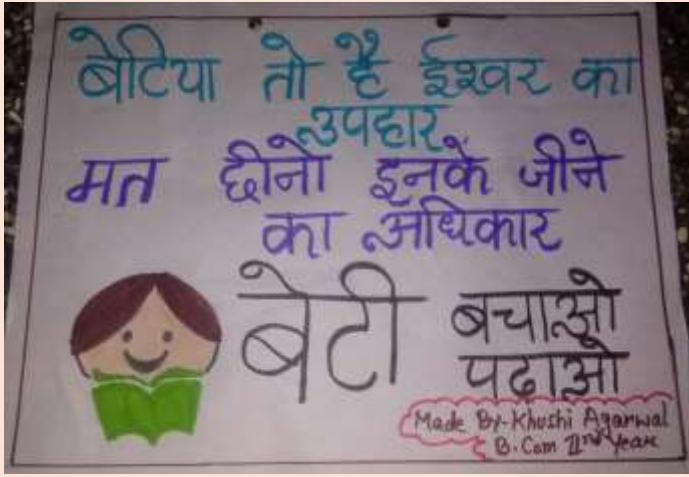 बेटिया तो है ईश्वर का
उपहार
मत छीनो इनके जीने
का अधिकार
बेटी बचाओ
पढाओ
Made By-Khushi Agarwal
B.Com IInd Year